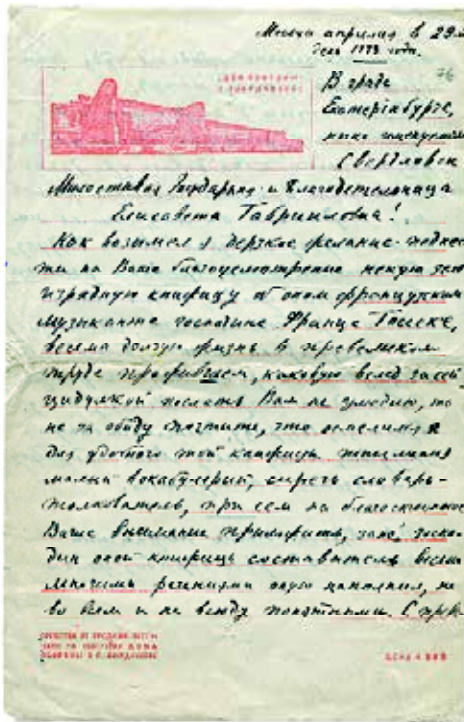 Месяца апрелия в 29-й
день года.
76
В граде
Екатерiнбурге,
ныне именуемом
Свердловск
Милостивая Государыня и Благодетельница
Елисавета Гаврииловна!
Как возымел я дерзкое желание поднес-
ти на Ваше благоусмотрение некую зело
изрядную книжицу об оном французском
музыканте господине Франце
весьма долгую жизнь в превеликом
труде прожившем, каковую вслед за сей
цидулкой послать Вам не умедлю, то
не за обиду почтите, что осмелился я
для удобного той книжицы понимания
малый вокабулярий, сиречь словарь-
толкователь, при сем на благосклонное
Ваше внимание приложить, зане госпо-
дин оной книжицы составитель весьма
многими речениями оную наполнил, не
во всем и не всюду понятными. С